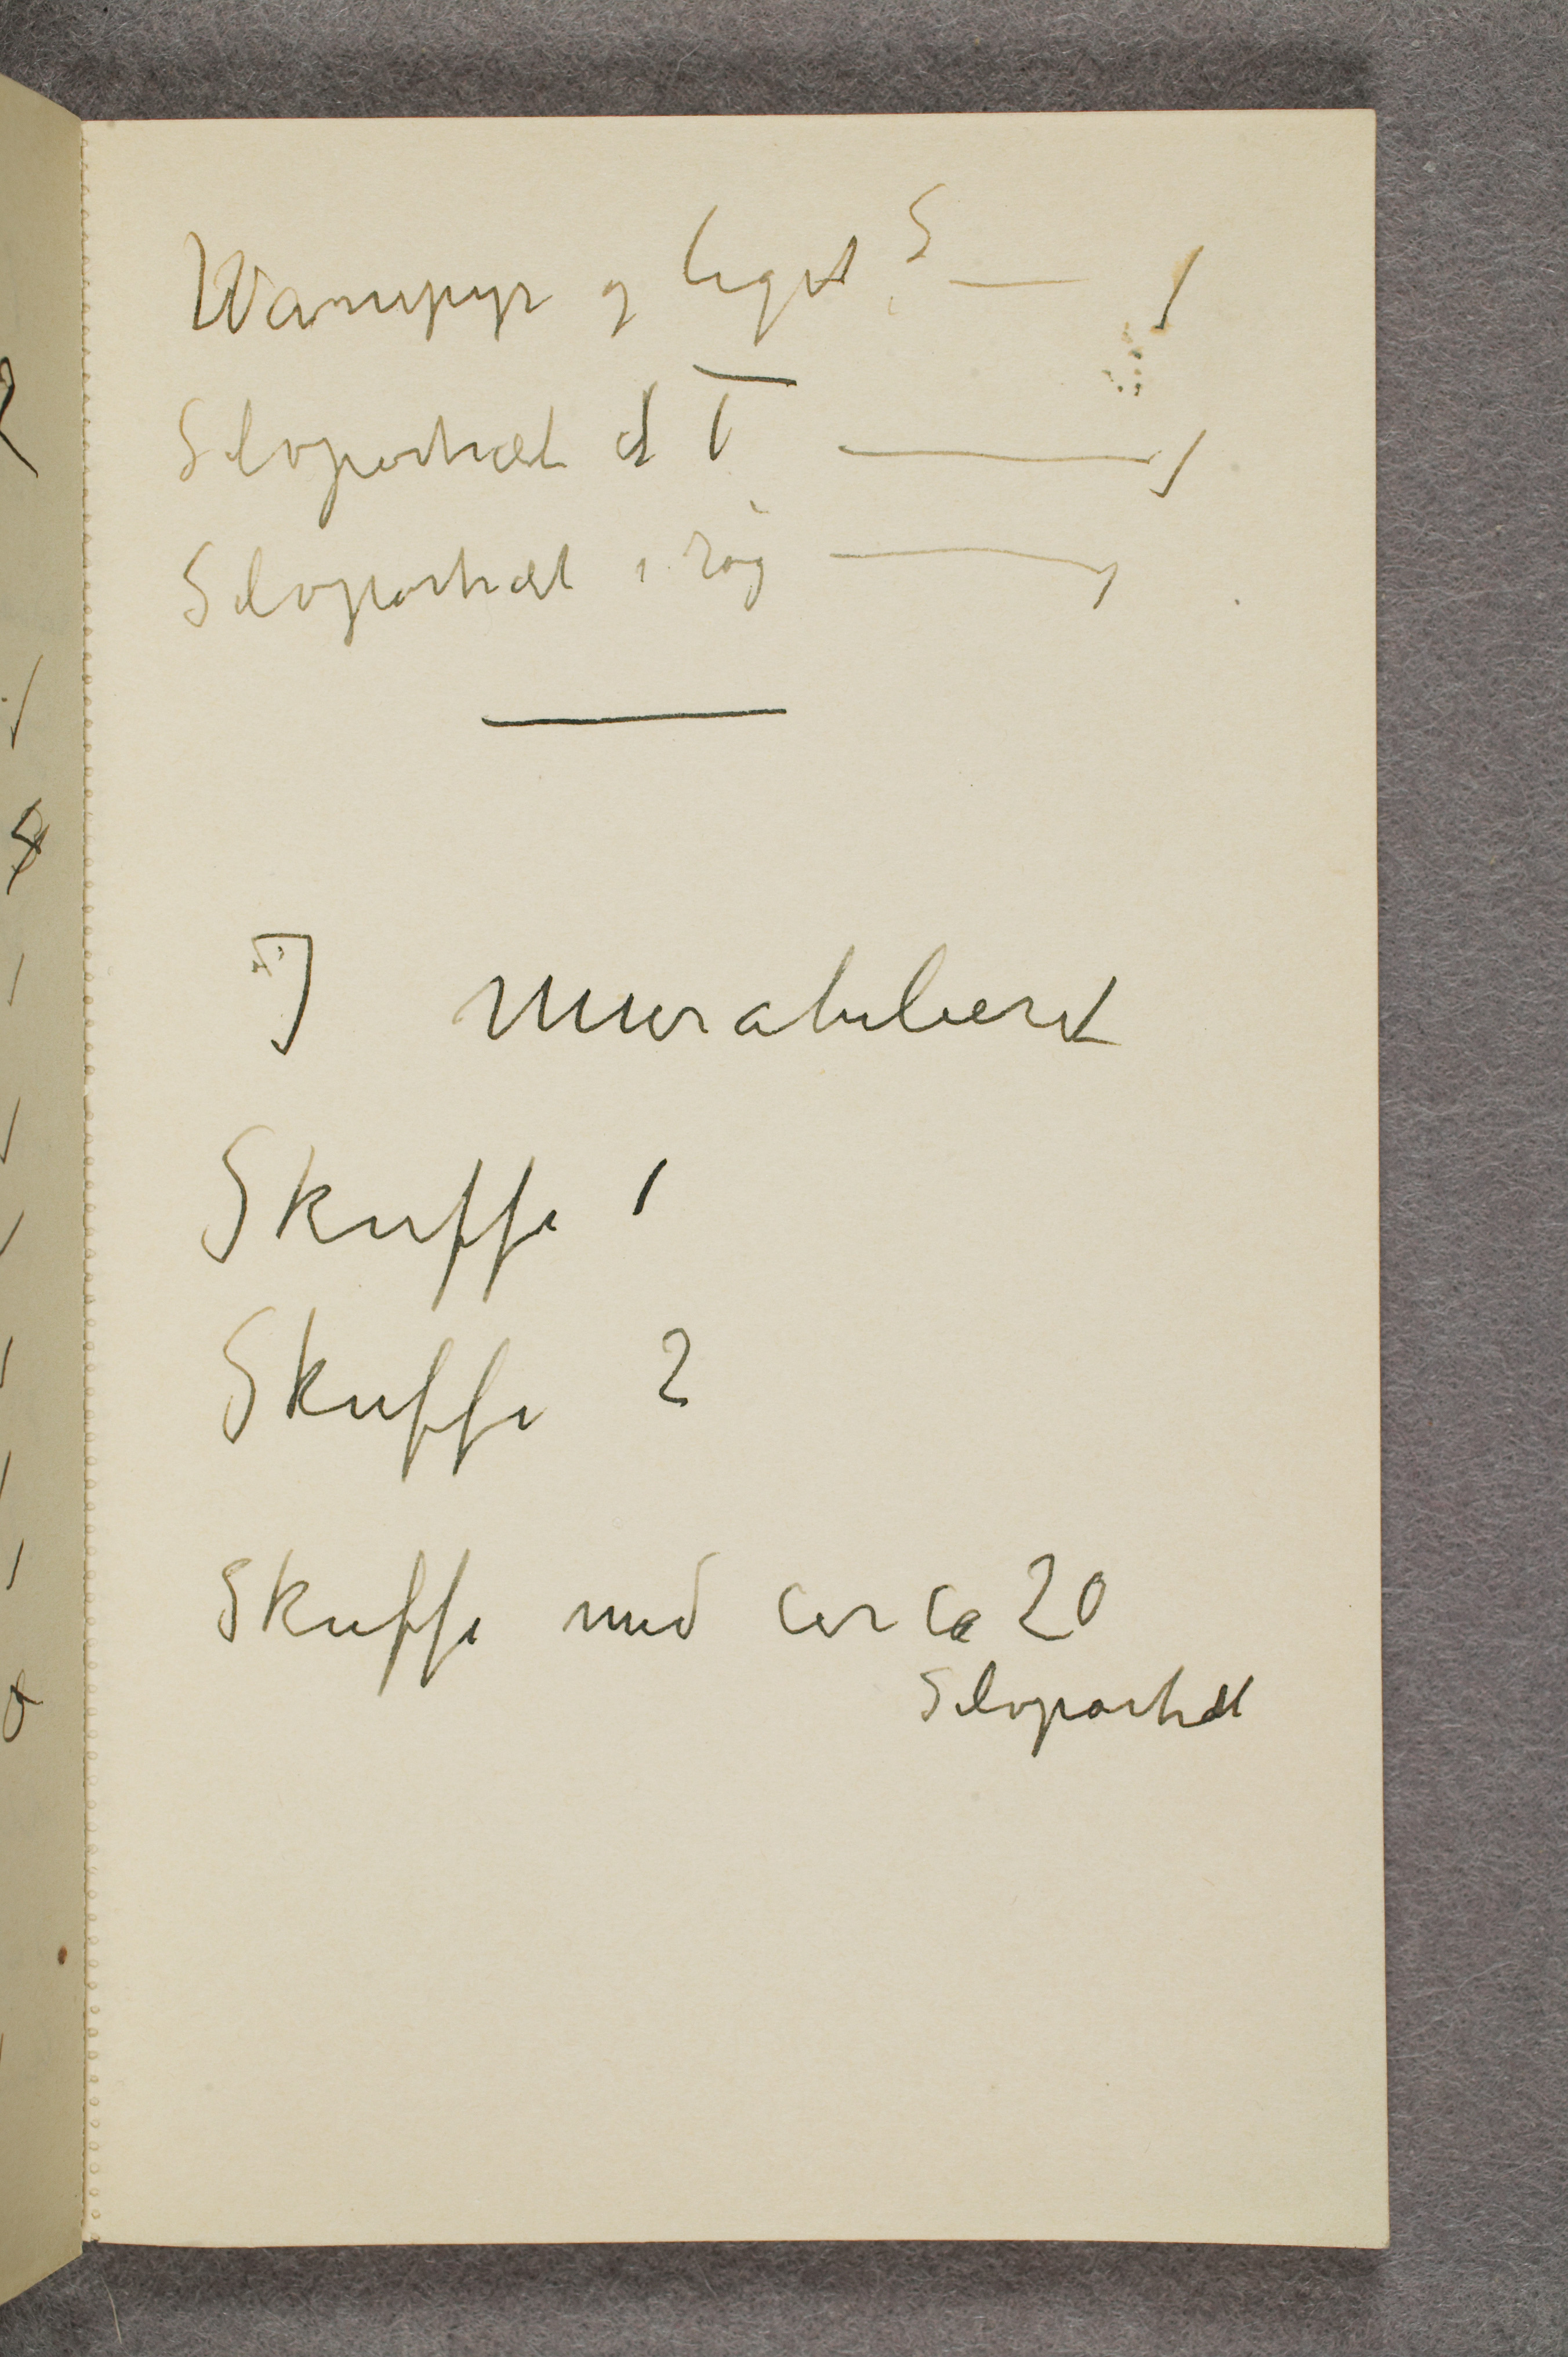 Wamepyr og liget S — 1
Selvportræt d T — 1
Selvportræt i røg — 1
I Muratelieret
Skuffe 1
Skuffe 2
Skuffe med circa 20
Selvportræt